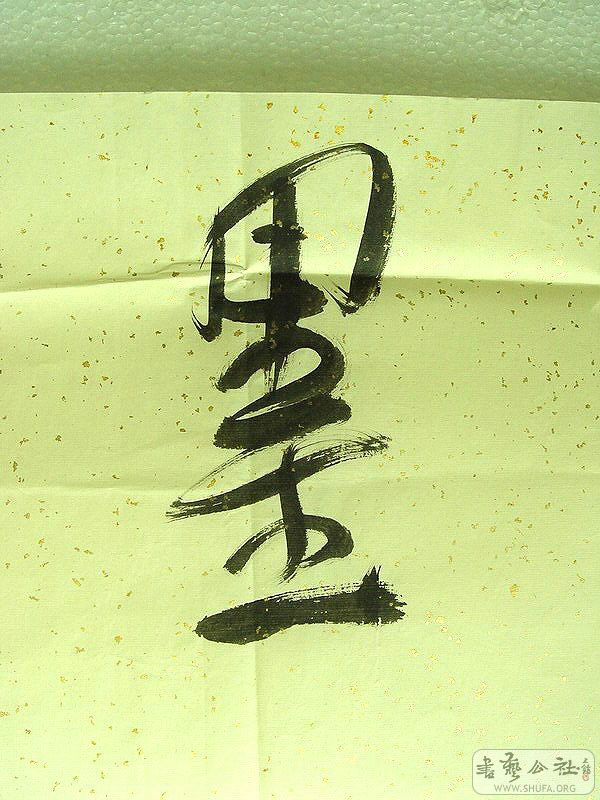 墨
書藝公社
WWW.SHUFA.ORG